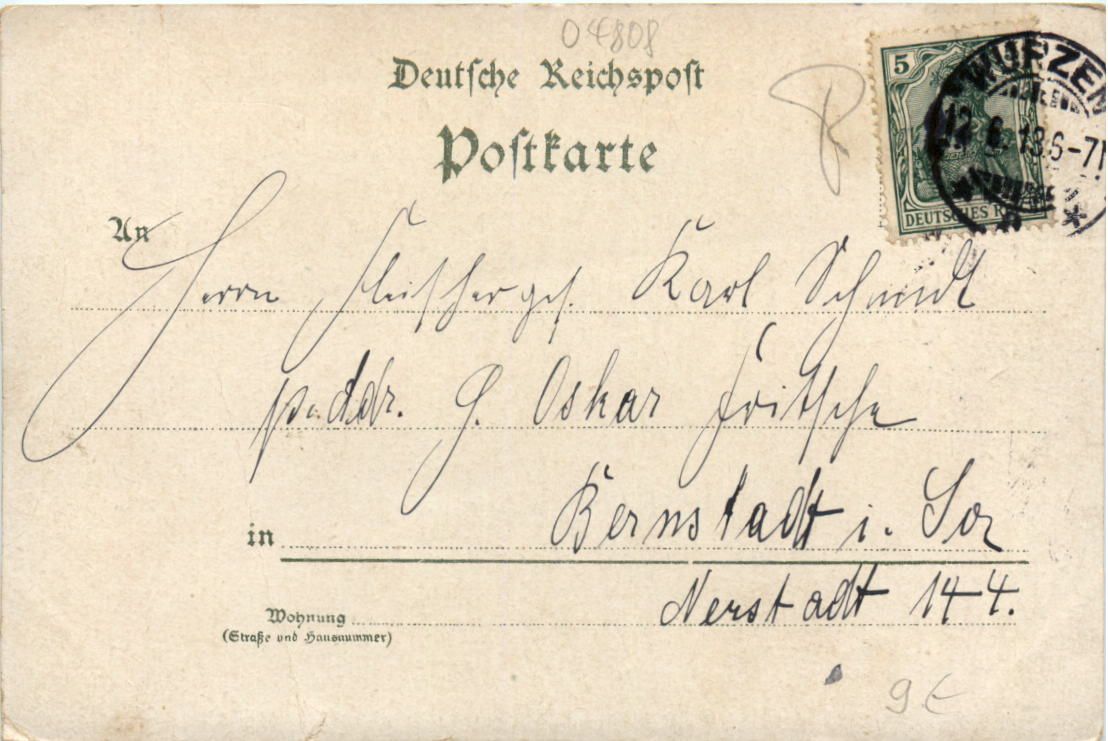 04808
Deutsche Reichspost
Postkarte
5
DEUTSCHES R
WURZEN
12.6.13 6-7N
An
Herrn Fleischerges. Karl Schmidt
p. Addr. H. Oskar Fritsche
in Bernstadt i.
Wohnung
(Straße und Hausnummer)
144.
9€